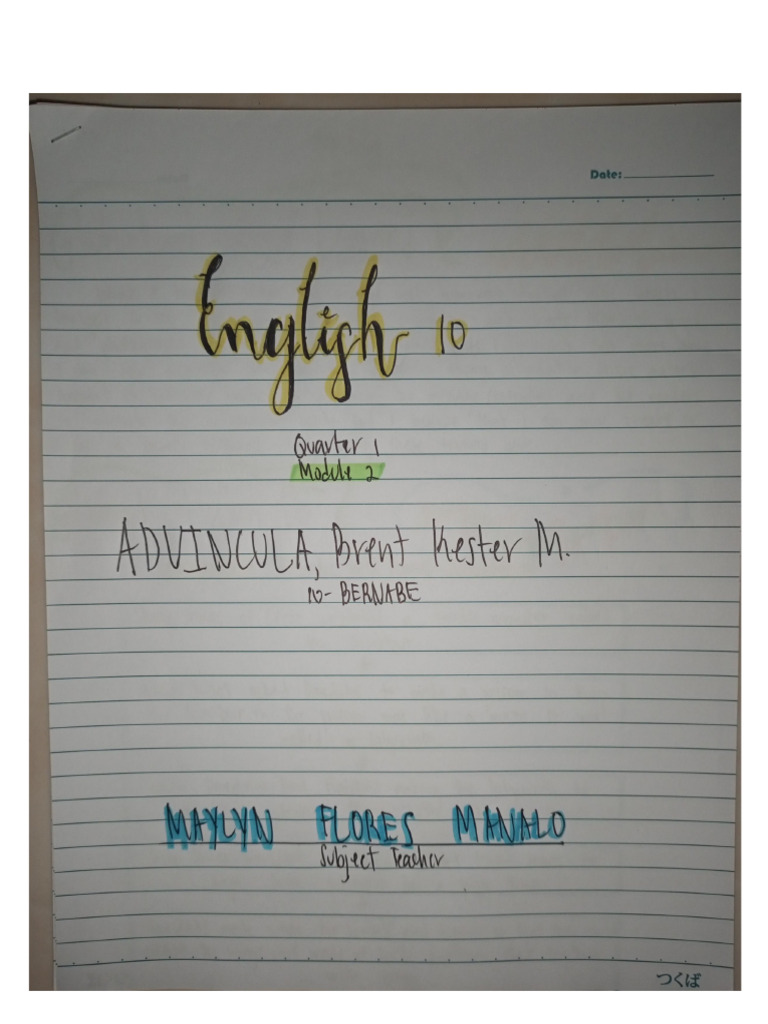 Date:
English 10
Quarter 1
Module 2
ADVINCULA, Brent Kester M.
10- BERNABE
MAYLYN FLORES MANALO
Subject Teacher
つくば